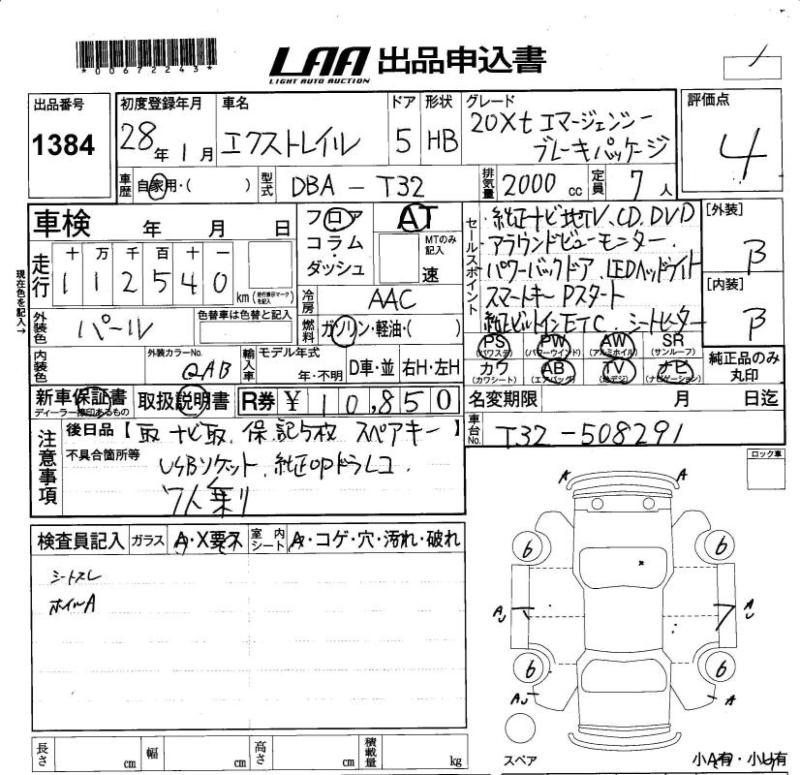 *00672243*
LAA 出品申込書
LIGHT AUTO AUCTION
出品番号
1384
初度登録年月
28年1月
車名
エクストレイル
ドア
5
形状
HB
グレード
20Xt エマージェンシー
ブレーキパッケージ
評価点
4
車歴 自家用・( )
型式 DBA-T32
排気量 2000cc
定員 7人
車検 年 月 日
フロア
コラム・
ダッシュ
AT
MTのみ記入
速
セールスポイント
・純正ナビ地TV、CD、DVD
・アラウンドビューモニター、
・パワーバックドア、LEDヘッドライト
スマートキー Pスタート
純正ビルトインETC、シートヒーター
[外装]
B
[内装]
B
現在色を記入→
走行
十 万 千 百 十 一
1 1 2 5 4 0
km
冷房 AAC
外装色 パール
色替車は色替と記入
燃料 ガソリン・軽油・( )
PS (パワステ)
PW (パワーウインド)
AW (アルミホイル)
SR (サンルーフ)
カワ (カワシート)
AB (エアバッグ)
TV (地デジ)
ナビ (ナビゲーション)
純正品のみ
丸印
内装色
外装カラーNo.
QAB
輸入車
モデル年式
年・不明
D車・並
右H・左H
新車保証書
ディーラー捺印あるもの
取扱説明書
R券 ¥10,850
名変期限 月 日迄
車台No. T32-508291
注意事項
後日品【取 ナビ取、保、記5枚 スペアキー】
不具合箇所等
USBソケット、純正OPドラレコ
7人乗り
ロック車
検査員記入
ガラス A・X要ス
室内シート A・コゲ・穴・汚れ・破れ
シートスレ
ホイルA
A A
6 6
AU AU
6 6
AU A
スペア
小A有・小U有
長さ cm
幅 cm
高さ cm
積載量 kg